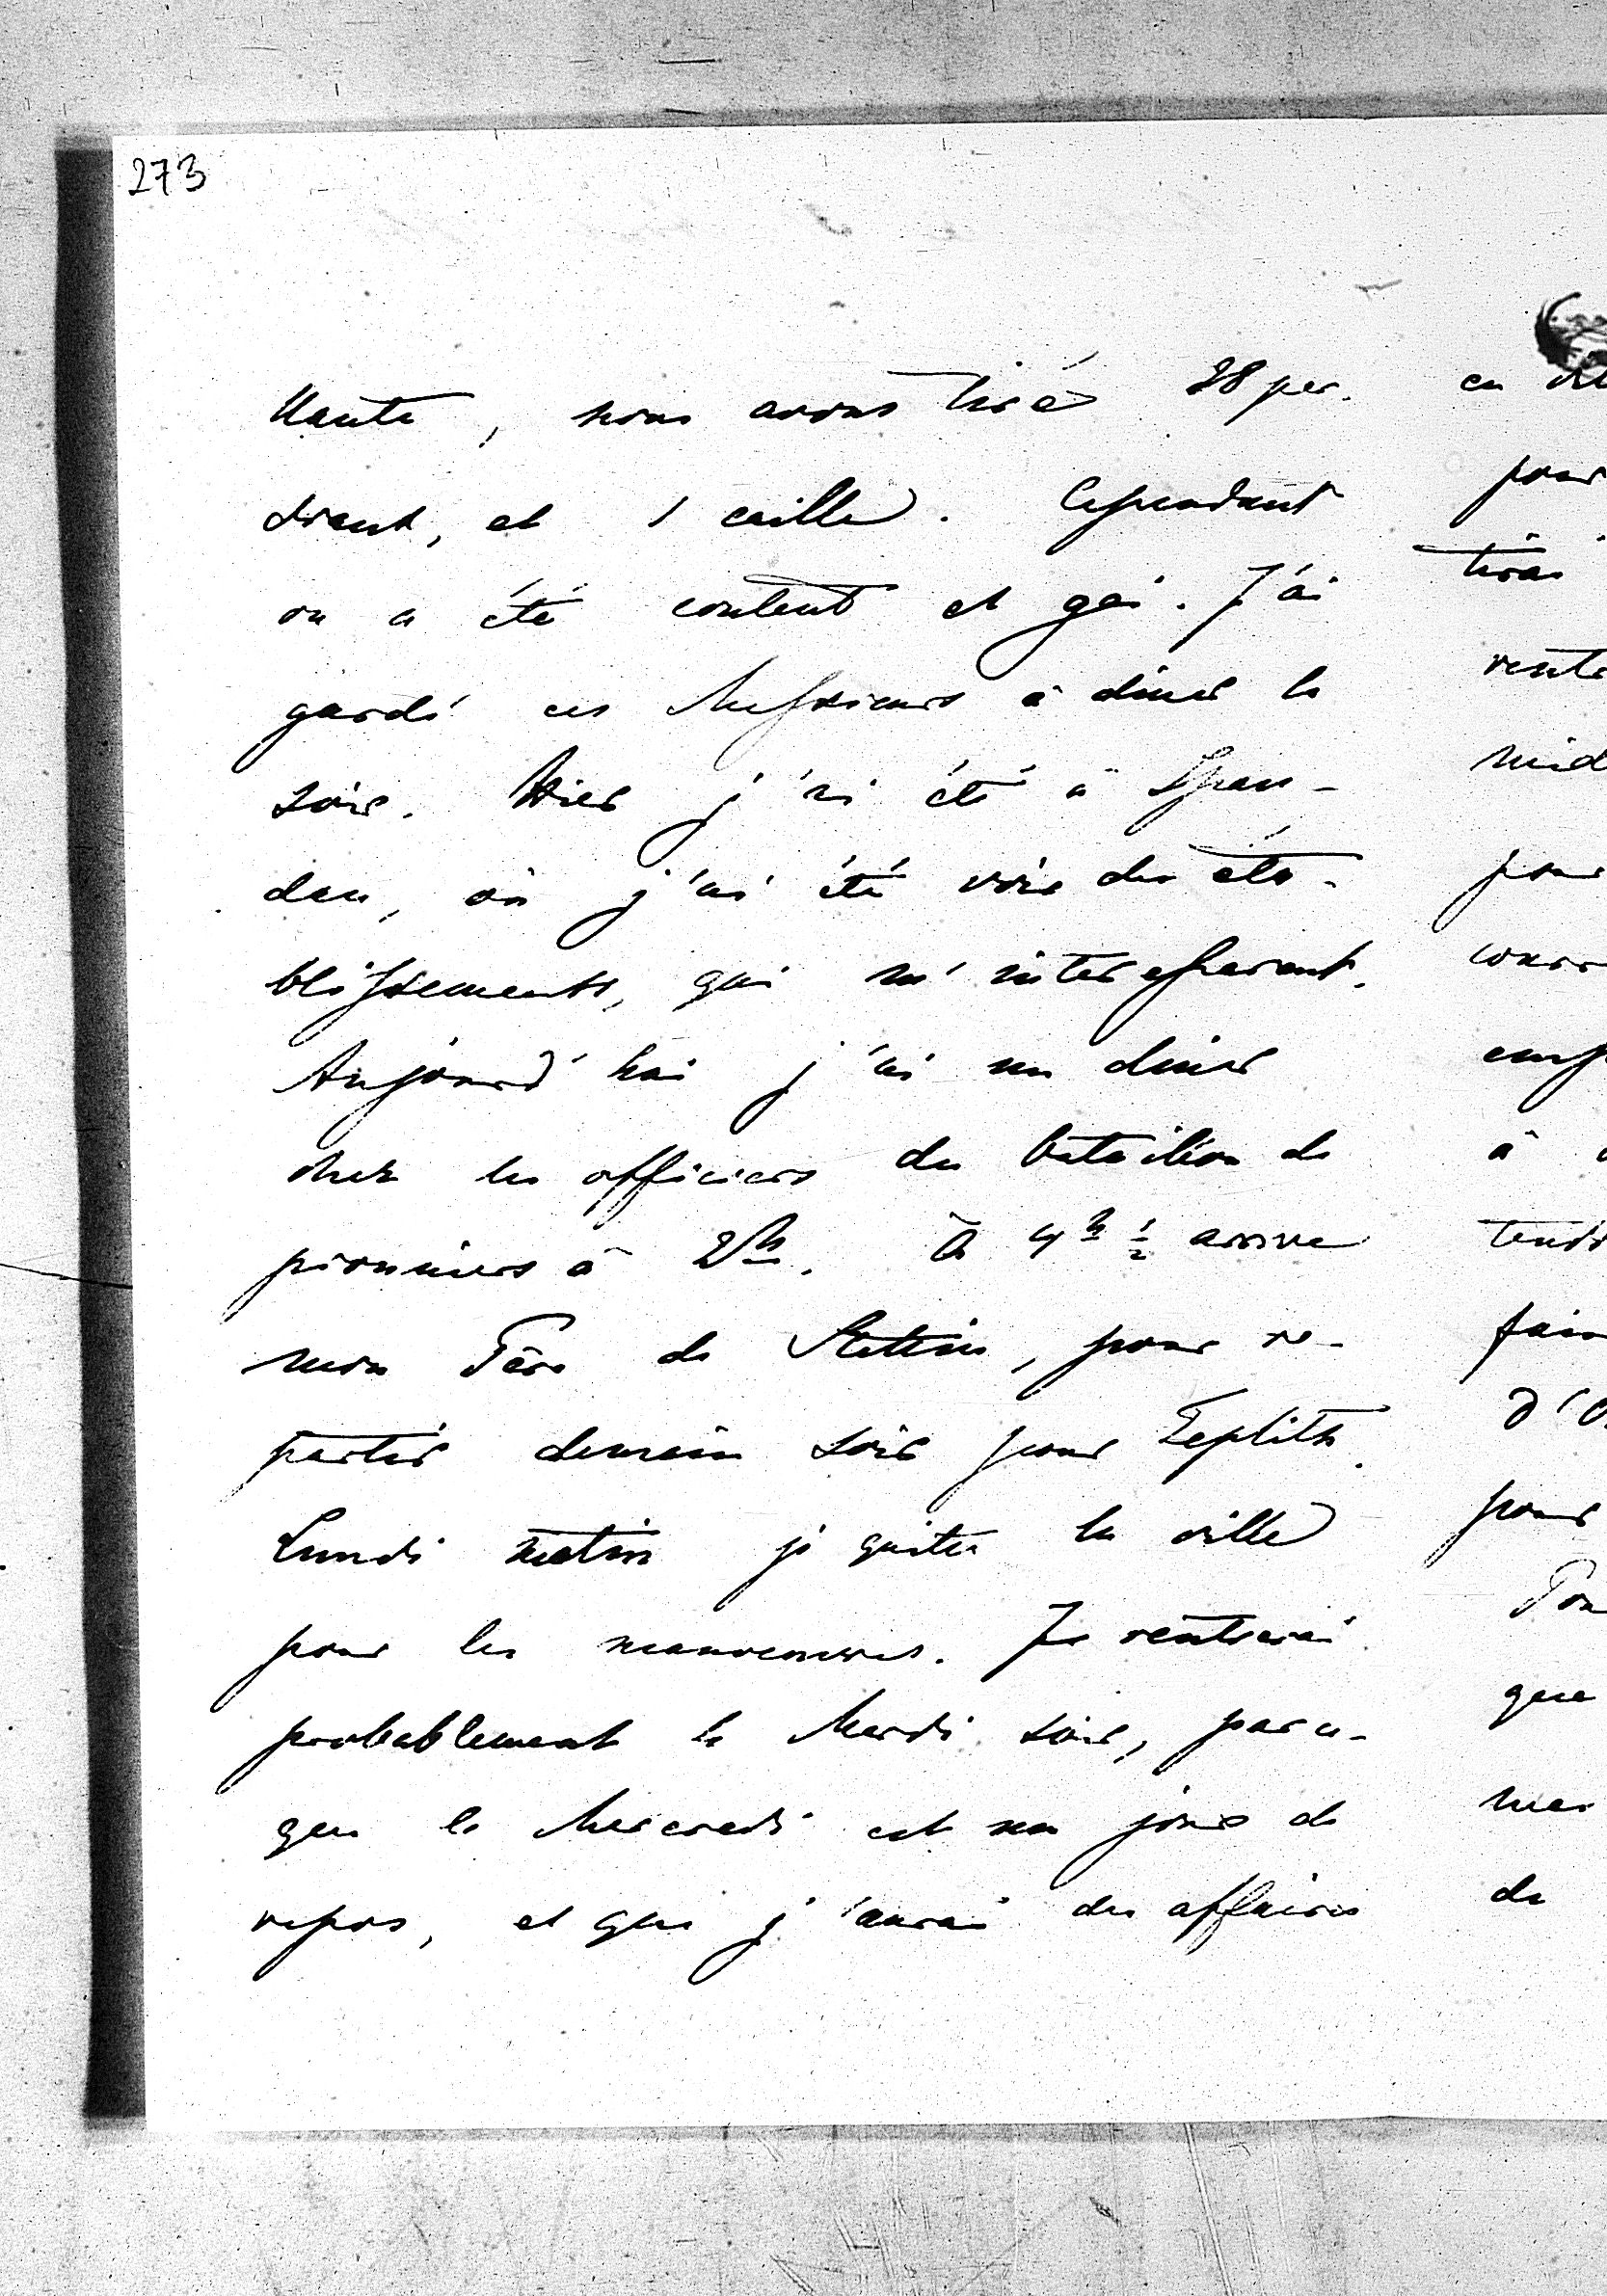 273
Uante, nous avons tiré 28 per-
dreaux, et 1 caille. Cependant
on a été content et gai. J'ai
gardé ces Messieurs à diner le
soir. Hier j'ai été à Span-
dau, où j'ai été voir des éta-
blissements, qui m'interessaient.
Aujourd'hui j'ai un diner
chez les officiers du bataillon de
pionniers à 2h. À 4h 1/2 arrive
mon Père de Stettin, pour re-
partir demain soir pour Teplitz.
Lundi matin je quitte la ville
pour les manoeuvres. Je rentrerai
probablement le Mardi soir, parce-
que le Mercredi est un jour de
repos, et que j'aurai des affaires
en
pour
tirai
rent
mid
pour
cour
à
tend
fair
pour
que
de